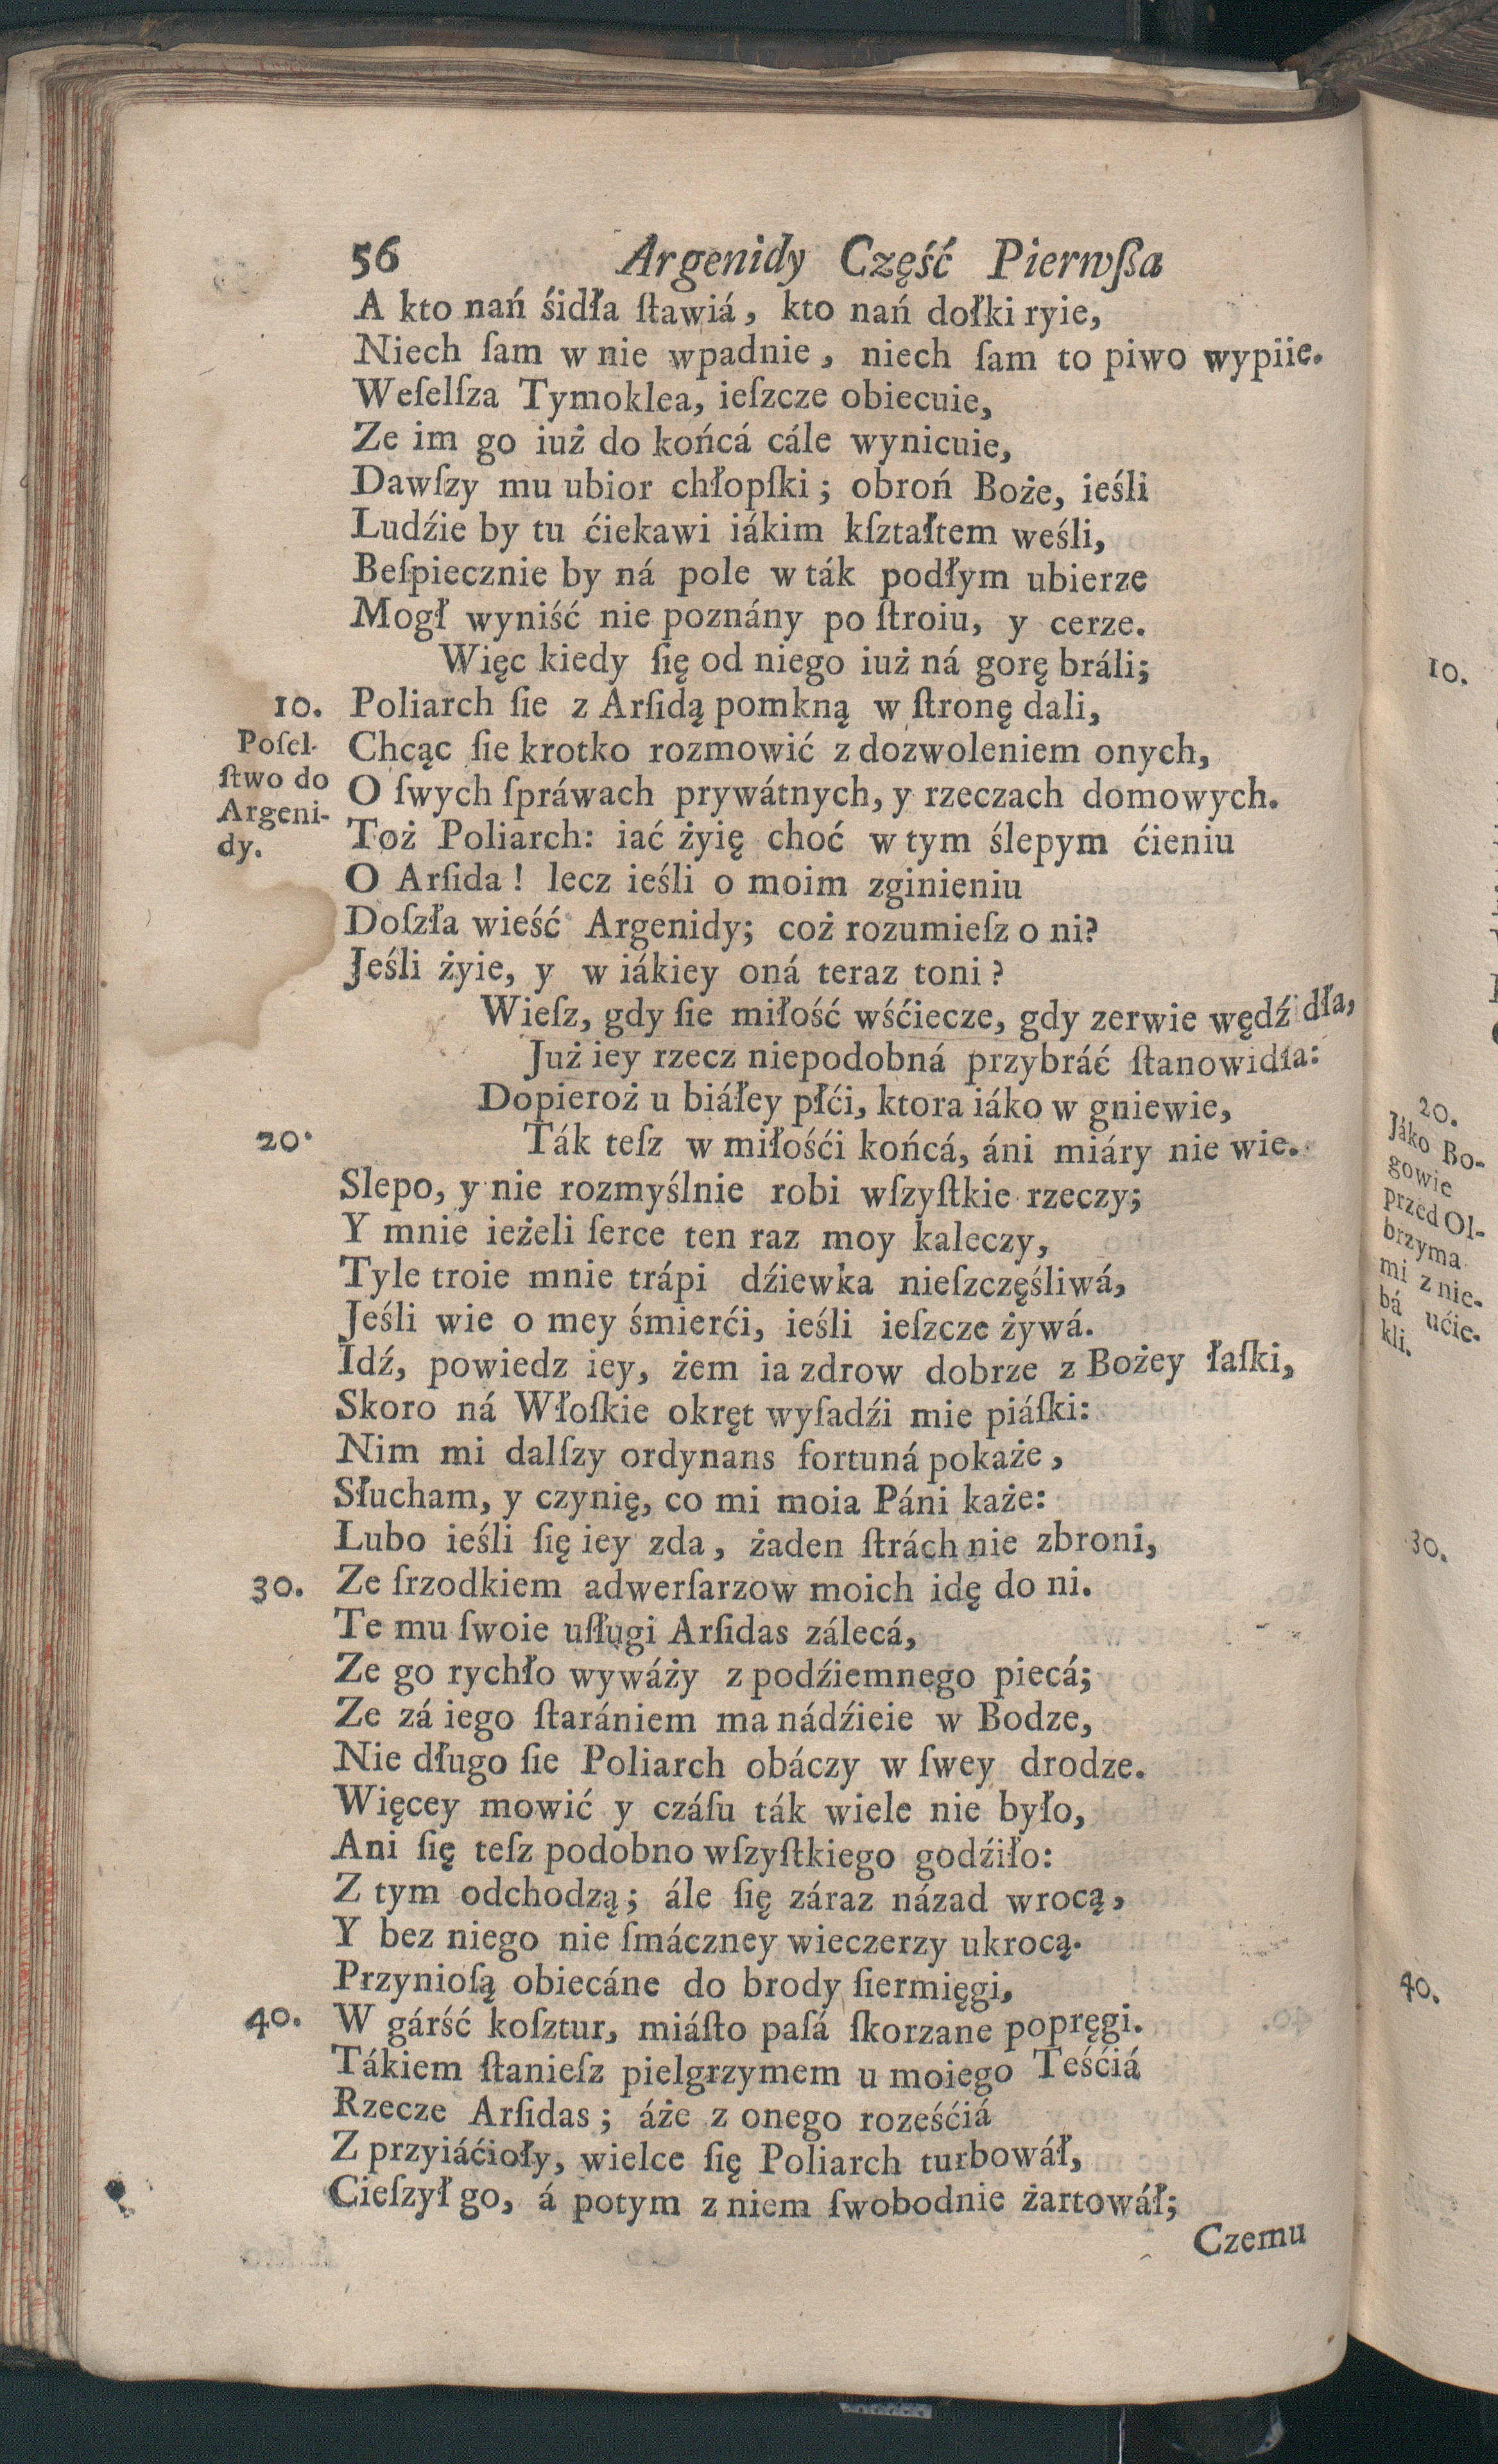 56 Argenidy Część Pierwßa
A kto nań śidła ſtawiá, kto nań dołki ryie,
Niech ſam w nie wpadnie, niech ſam to piwo wypiie.
Weſelſza Tymoklea, ieſzcze obiecuie,
Ze im go iuż do końcá cále wynicuie,
Dawſzy mu ubior chłopſki; obroń Boże, ieśli
Ludźie by tu ćiekawi iákim kſztałtem weśli,
Beſpiecznie by ná pole w ták podłym ubierze
Mogł wyniść nie poznány po ſtroiu, y cerze.
Więc kiedy ſię od niego iuż ná gorę bráli;
10. Poliarch ſie z Arſidą pomkną w ſtronę dali,
Poſel-
ſtwo do
Argeni-
dy.
Chcąc ſie krotko rozmowić z dozwoleniem onych,
O ſwych ſpráwach prywátnych, y rzeczach domowych.
Toż Poliarch: iać żyię choć w tym ślepym ćieniu
O Arſida! lecz ieśli o moim zginieniu
Doſzła wieść Argenidy; coż rozumieſz o ni?
Jeśli żyie, y w iákiey oná teraz toni?
Wieſz, gdy ſie miłość wśćiecze, gdy zerwie wędźidła,
Już iey rzecz niepodobná przybráć ſtanowidła:
Dopieroż u biáłey płći, ktora iáko w gniewie,
20. Ták teſz w miłośći końcá, áni miáry nie wie.
Slepo, y nie rozmyślnie robi wſzyſtkie rzeczy;
Y mnie ieżeli ſerce ten raz moy kaleczy,
Tyle troie mnie trápi dźiewka nieſzczęśliwá,
Jeśli wie o mey śmierći, ieśli ieſzcze żywá.
Idź, powiedz iey, żem ia zdrow dobrze z Bożey łaſki,
Skoro ná Włoſkie okręt wyſadźi mie piáſki:
Nim mi dalſzy ordynans fortuná pokaże,
Słucham, y czynię, co mi moia Páni każe:
Lubo ieśli ſię iey zda, żaden ſtrách nie zbroni,
30. Ze ſrzodkiem adwerſarzow moich idę do ni.
Te mu ſwoie uſługi Arſidas zálecá,
Ze go rychło wywáży z podźiemnego piecá;
Ze zá iego ſtarániem ma nádźieie w Bodze,
Nie długo ſie Poliarch obáczy w ſwey drodze.
Więcey mowić y czáſu ták wiele nie było,
Ani ſię teſz podobno wſzyſtkiego godźiło:
Z tym odchodzą; ále ſię záraz názad wrocą,
Y bez niego nie ſmáczney wieczerzy ukrocą.
Przynioſą obiecáne do brody ſiermięgi,
40. W gárść koſztur, miáſto paſá ſkorzane popręgi.
Tákiem ſtanieſz pielgrzymem u moiego Teśćiá
Rzecze Arſidas; áże z onego roześćiá
Z przyiáćioły, wielce ſię Poliarch turbowáł,
Cieſzył go, á potym z niem ſwobodnie żartowáł;
Czemu
10.
20.
Jáko Bo-
gowie
przed Ol-
brzyma
mi z nie-
bá ućie-
kli.
30.
40.